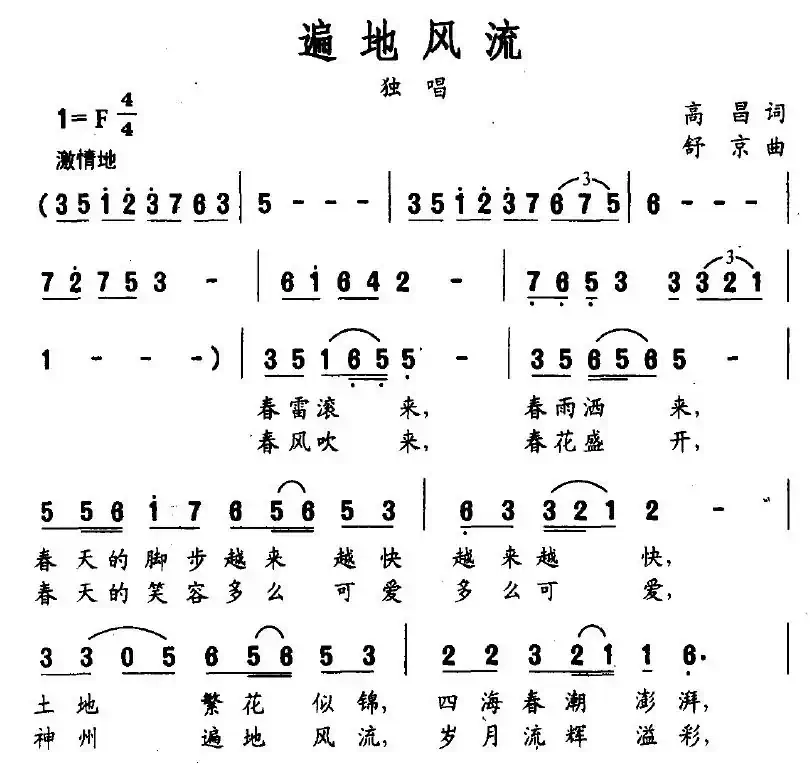 遍地风流
独唱
1=F 4/4
高昌词
舒京曲
激情地
(3 5 1̇ 2̇ 3̇ 7 6 3 | 5 - - - | 3 5 1̇ 2̇ 3̇ 7 6 7 5 | 6 - - - |
7 2̇ 7 5 3 - | 6 1̇ 6 4 2 - | 7̣ 6̣ 5̣ 3 3 3 2 1 |
1 - - -) | 3 5 1 6̣ 5̣ 5̣ - | 3 5 6 5 6 5 - |
春雷滚来， 春雨洒来，
春风吹来， 春花盛开，
5 5 6 1̇ 7 6 5 6 5 3 | 6̣ 3 3 2 1 2 - |
春天的脚步越来越快 越来越快，
春天的笑容多么可爱 多么可爱，
3 3 0 5 6 5 6 5 3 | 2 2 3 2 1 1 6̣. |
土地 繁花似锦， 四海春潮澎湃，
神州 遍地风流， 岁月流辉溢彩，